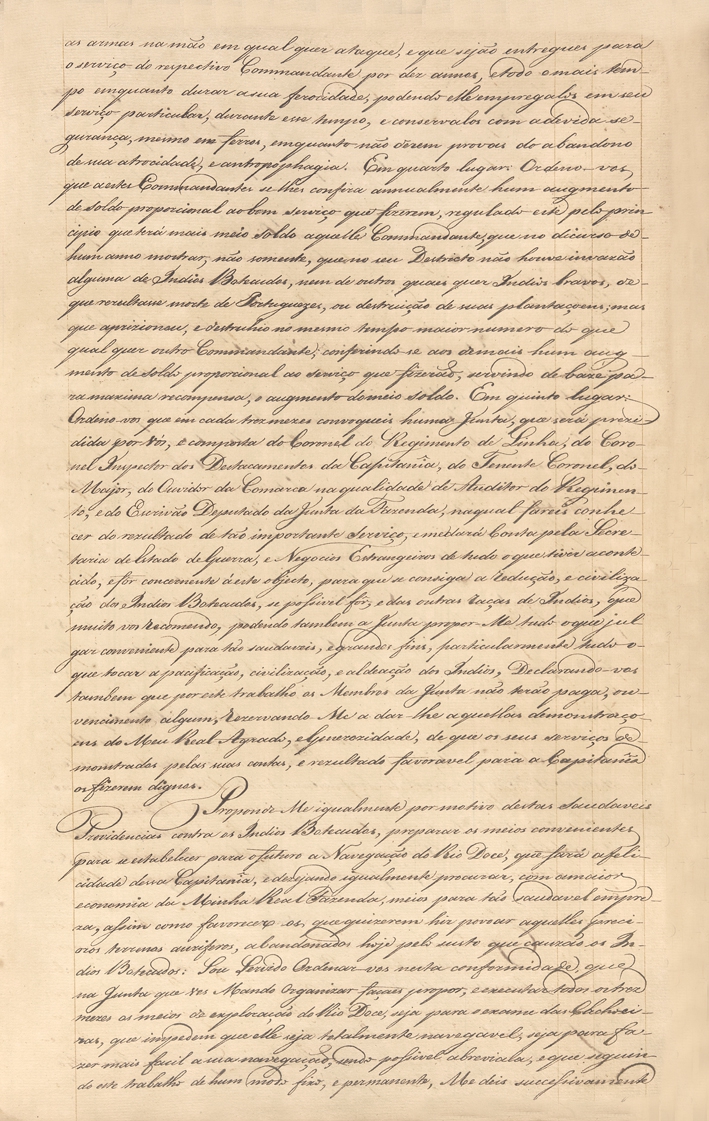 as armas na mão em qual quer ataque; e que sejão entregues para
o serviço do respectivo Commandante por dez annos, e todo o mais tem-
po emquanto durar a sua ferocidade, podendo elle empregalos em seu
serviço particular, durante esse tempo, e conservalos com a devida se-
gurança, mesmo em ferros, emquanto não derem provas do abandono
de sua atrocidade, e antropophagia. Em quarto lugar: Ordeno-vos,
que a estes Commandantes se lhes confira annualmente hum augmento
de soldo proporcional ao bom serviço que fizerem, regulado este pelo prin-
cipio que terá mais meio soldo aquelle Commandante, que no dicurso de
hum anno mostrar, não somente, que no seu Destricto não houve invazão
alguma de Indios Botecudos, nem de outros quaes quer Indios bravos, de
que rezultasse morte de Portuguezes, ou destruição de suas plantaçoens; mas
que aprizionou, e destruhio no mesmo tempo maior numero do que
qual quer outro Commandante; conferindo-se aos demais hum aug-
mento de soldo proporcional ao serviço que fizerão, servindo de baze pa-
ra maxima recompensa, o augmento de meio soldo. Em quinto lugar:
Ordeno-vos que em cada trez mezes convoqueis huma Junta, que será prezi-
dida por Vós, e composta do Coronel do Regimento de Linha, do Coro-
nel Inspector dos Destacamentos da Capitanîa, do Tenente Coronel, do
Major, do Ouvidor da Comarca na qualidade de Auditor do Regimen-
to, e do Escrivão Deputado da Junta da Fazenda, na qual fareis conhe-
cer do rezultado de tão importante Serviço, e me dará Conta pela Secre-
taria de Estado de Guerra, e Negocios Estrangeiros de tudo o que tiver aconte-
cido, e for concernente á este objecto, para que se consiga a redução, e civiliza-
ção dos Indios Botecudos, se possivel fôr, e das outras raças de Indios, que
muito vos recomendo, podendo tambem a Junta propor-Me tudo o que jul-
gar conveniente para tão saudaveis, e grandes fins, particularmente tudo o-
que tocar a pacificação, civilização, e aldeação dos Indios, Declarando-vos
tambem que por este trabalho os Membros da Junta não terão paga, ou
vencimento algum, rezervando-Me a dar-lhe aquellas demonstraço-
ens do Meu Real Agrado, e Generozidade, de que os seus serviços de-
monstrados pelas suas contas, e rezultado favoravel para a Capitanîa
os fizerem dignos.
Propondo-Me igualmente por motivo destas saudaveis
Providencias contra os Indios Botecudos, preparar os meios convenientes
para se estabelecer para o futuro a Navegação do Rio Doce, que fará a feli-
cidade dessa Capitania, e dezejando igualmente procurar, com a maior
economia da Minha Real Fazenda, meios para tão saudavel empre-
za, assim como favorecer os, que quizerem hir povoar aquelles preci-
ozos terrenos auriferos, abandonados hoje pelo susto que cauzão os In-
dios Botecudos: Sou Servido Ordenar-vos nesta conformidade, que
na Junta que Vos Mando Organizar façaes propor, e executar todos os trez
mezes os meios de exploração do Rio Doce, seja para o exame das Cachoei-
ras, que impedem que elle seja totalmente navegavel, seja para fa-
zer mais facil a sua navegação, sendo possivel abreviala, e que seguin-
do este trabalho de hum modo fixo, e permanente, Me deis successivamente